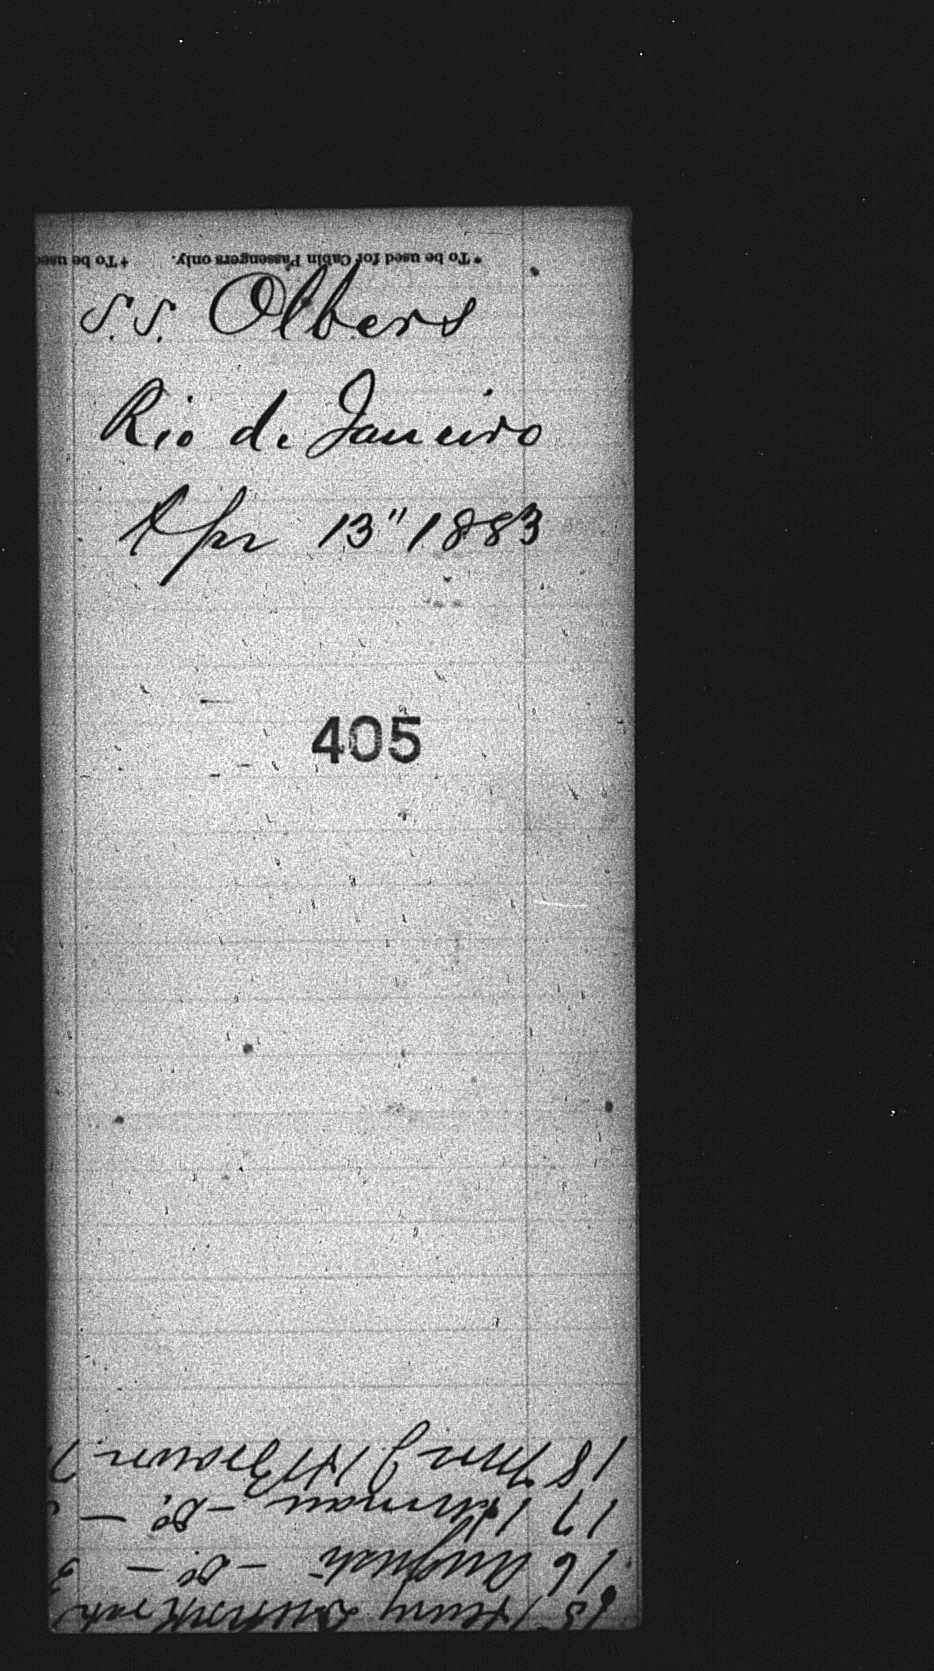 * To be used for Cabin Passengers only. † To be used
S.S. Olbers
Rio de Janeiro
Apr 13" 1883
405
18
17 Herman - do. -
16 August - do. - 3
15 Henry